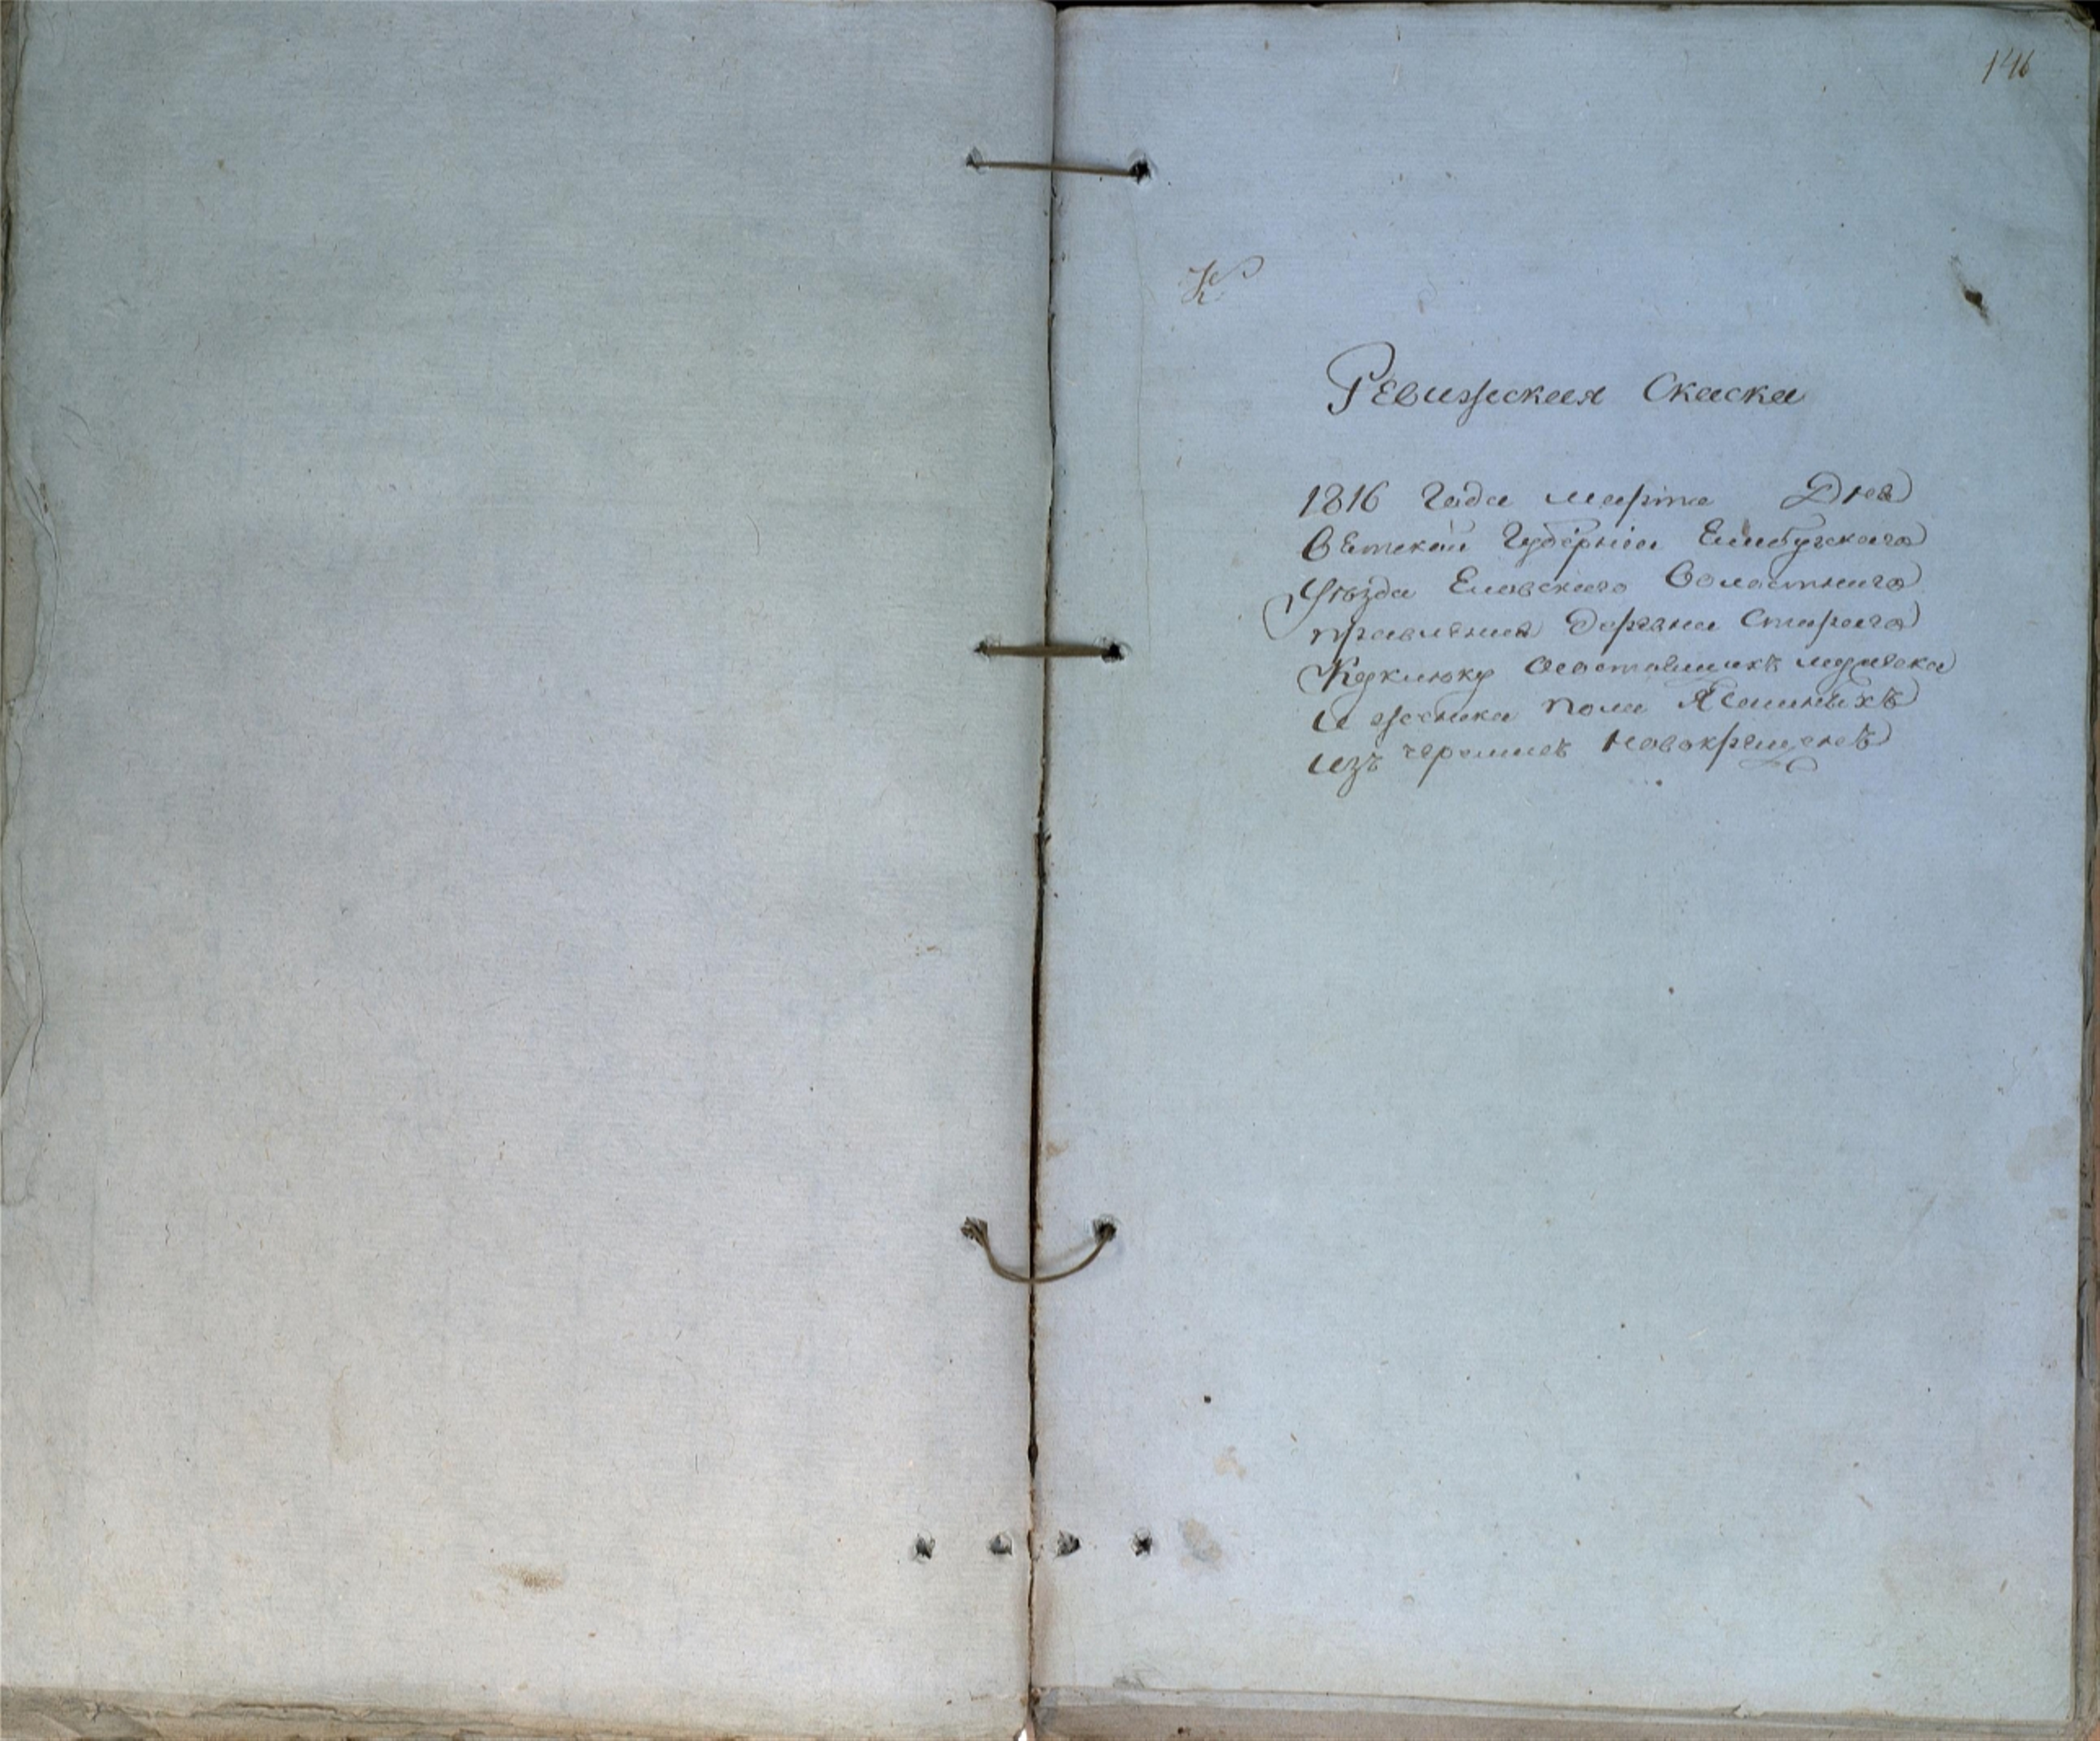 146
Ревижская Скаска
1816 Года марта Дня
Вятской Губернии Елабугскаго
Уѣзда Еловскаго Волостнаго
правления деревни Стараго
Куклюку мужеска
и женска пола Ясашныхъ
изъ черемисъ новокрещенъ